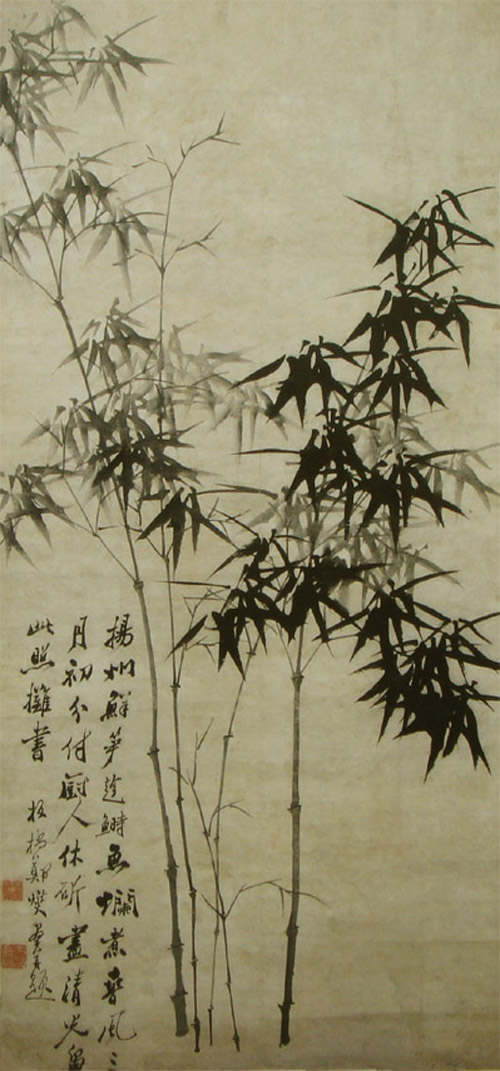 揚州鮮笋趂鰣魚爛煮春風三
月初分付廚人休斫盡清光留
此照攤書
板橋鄭燮畫并題